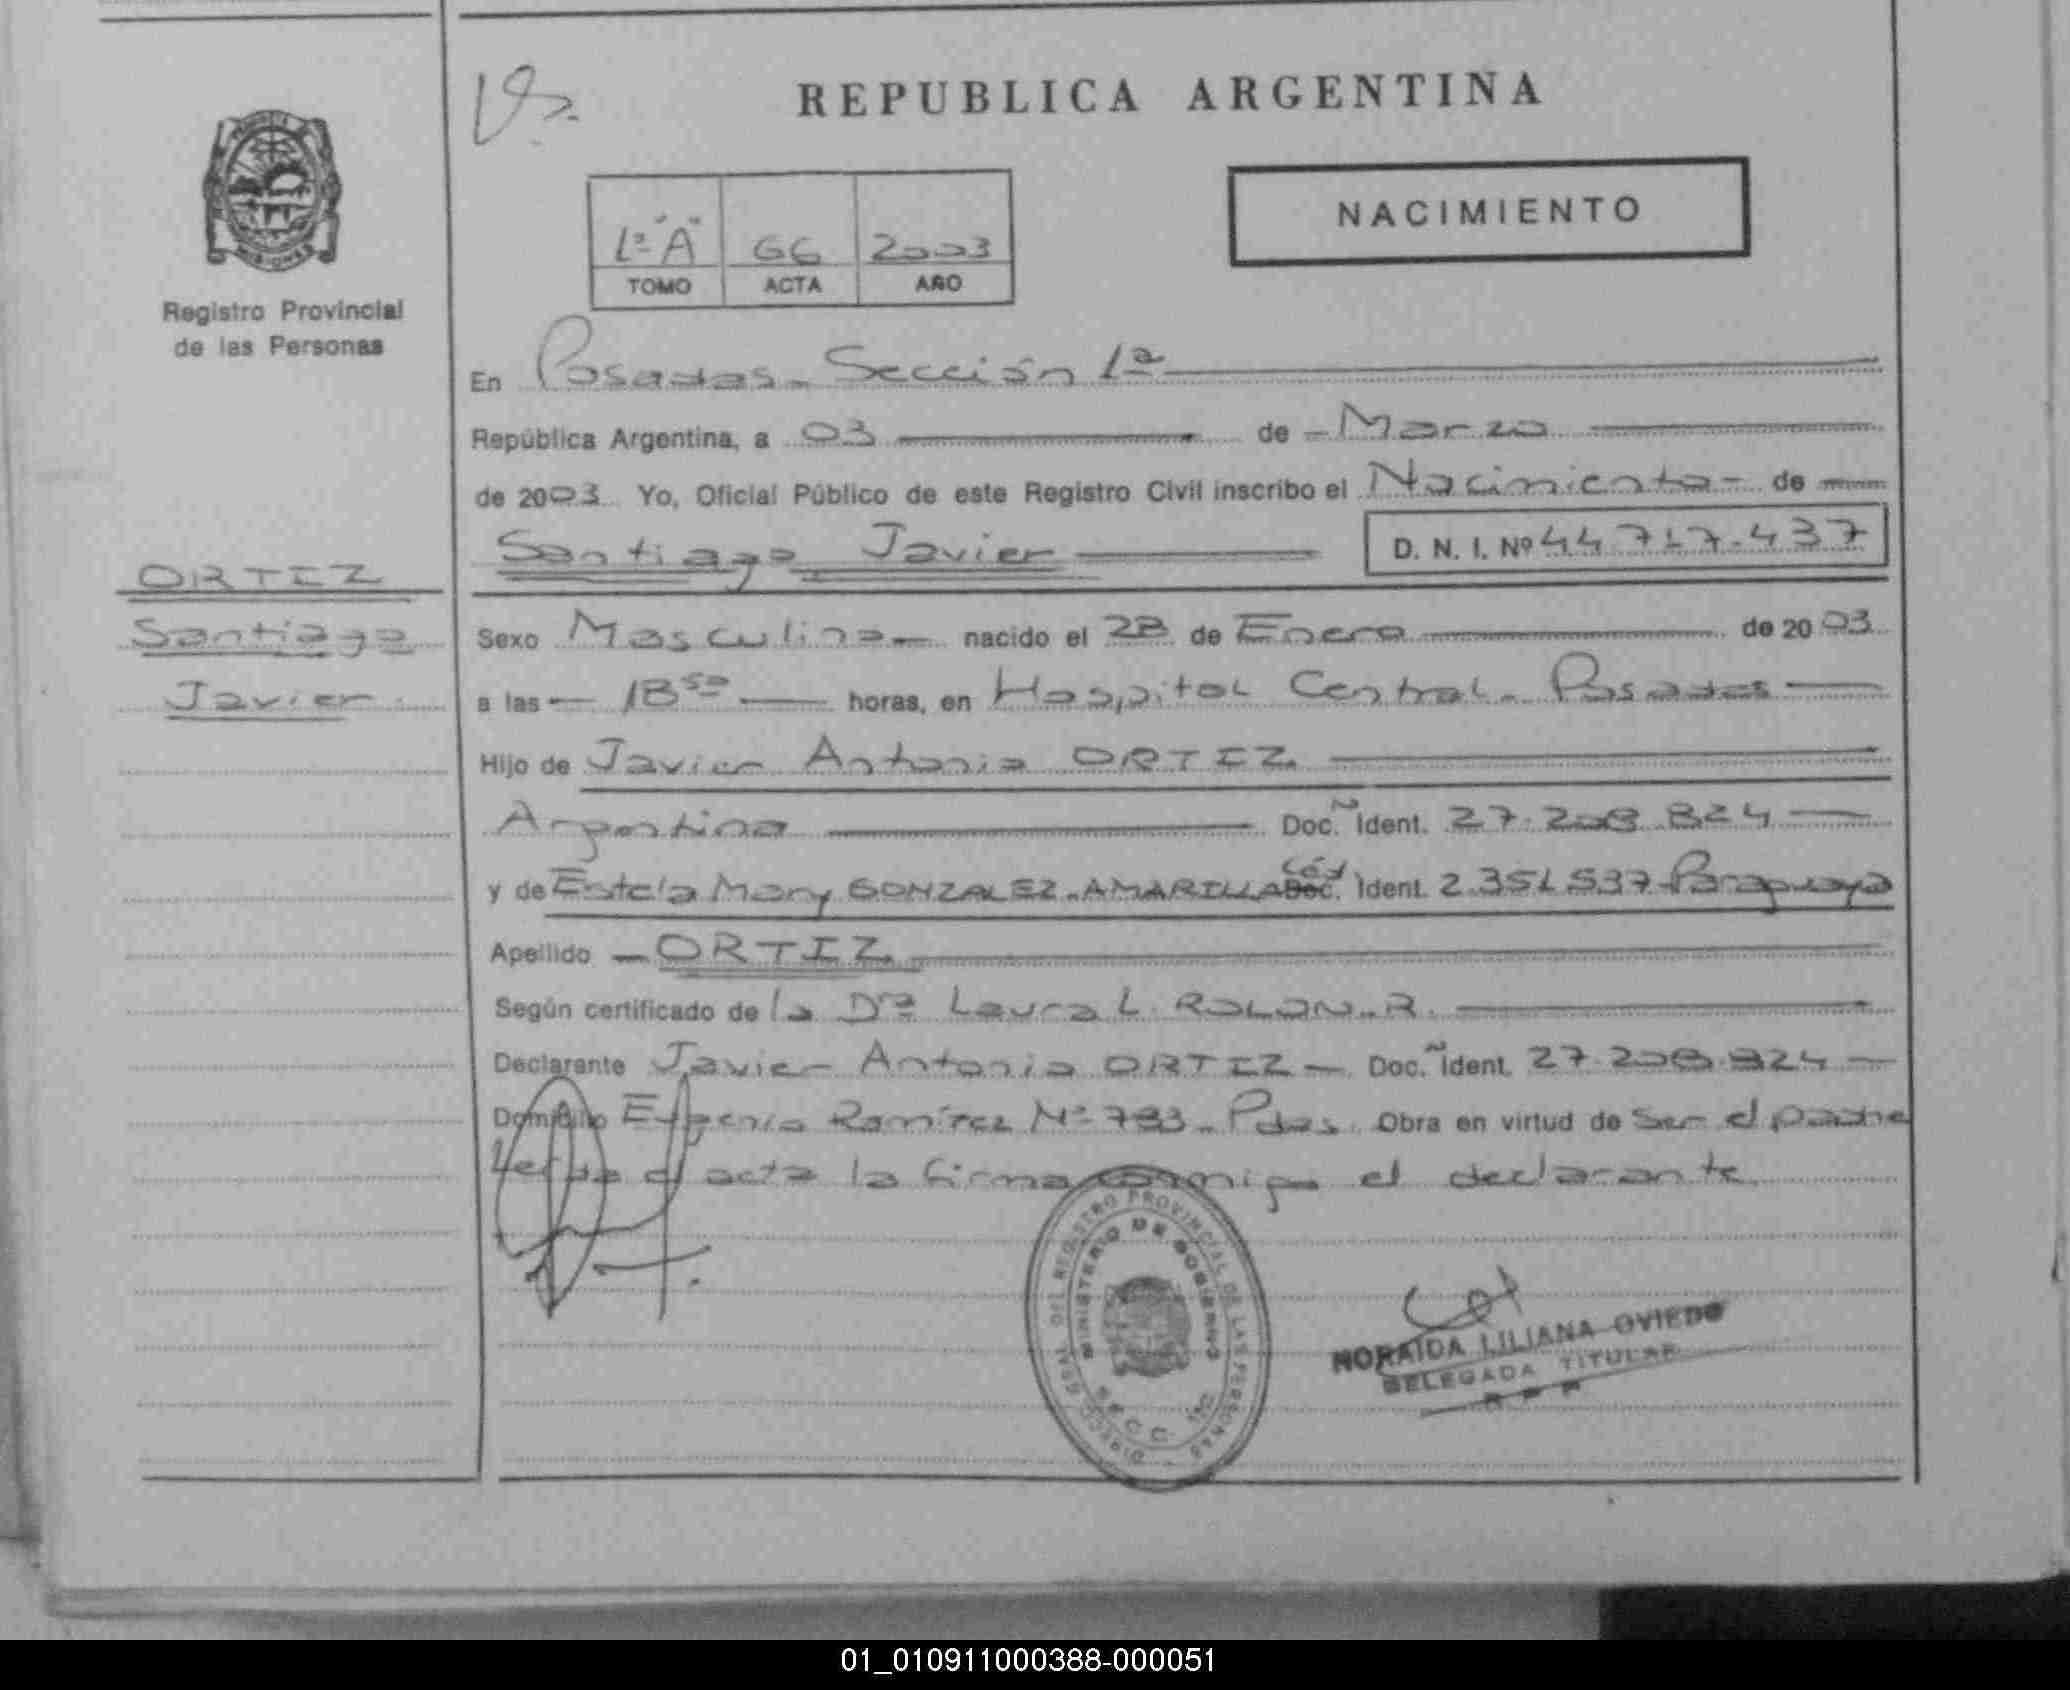 REPUBLICA ARGENTINA
NACIMIENTO
1º "A" 66 2003
TOMO ACTA AÑO
Registro Provincial
de las Personas
En Posadas - Sección 1ª
República Argentina, a 03 de Marzo
de 2003 Yo, Oficial Público de este Registro Civil inscribo el Nacimiento de
Santiago Javier D. N. I. Nº 44.717.437
ORTIZ
Santiago
Javier
Sexo Masculino nacido el 28 de Enero de 2003
a las 18 50 horas, en Hospital Central - Posadas
Hijo de Javier Antonio ORTIZ
Argentino Doc. Ident. 27.208.824
y de Estela Mary GONZALEZ AMARILLA Céd Doc. Ident. 2.351.537 Paraguaya
Apellido ORTIZ
Según certificado de la Drª Laura L. ROLON R.
Declarante Javier Antonio ORTIZ Doc. Ident. 27.208.824
Domicilio Eugenio Ramírez Nº 793 - Pdas. Obra en virtud de ser el padre
Leída el acta la firma conmigo el declarante
DIRECC. GRAL. DEL REGISTRO PROVINCIAL DE LAS PERSONAS
MINISTERIO DE GOBIERNO
NORAIDA LILIANA OVIEDO
DELEGADA TITULAR
01_010911000388-000051